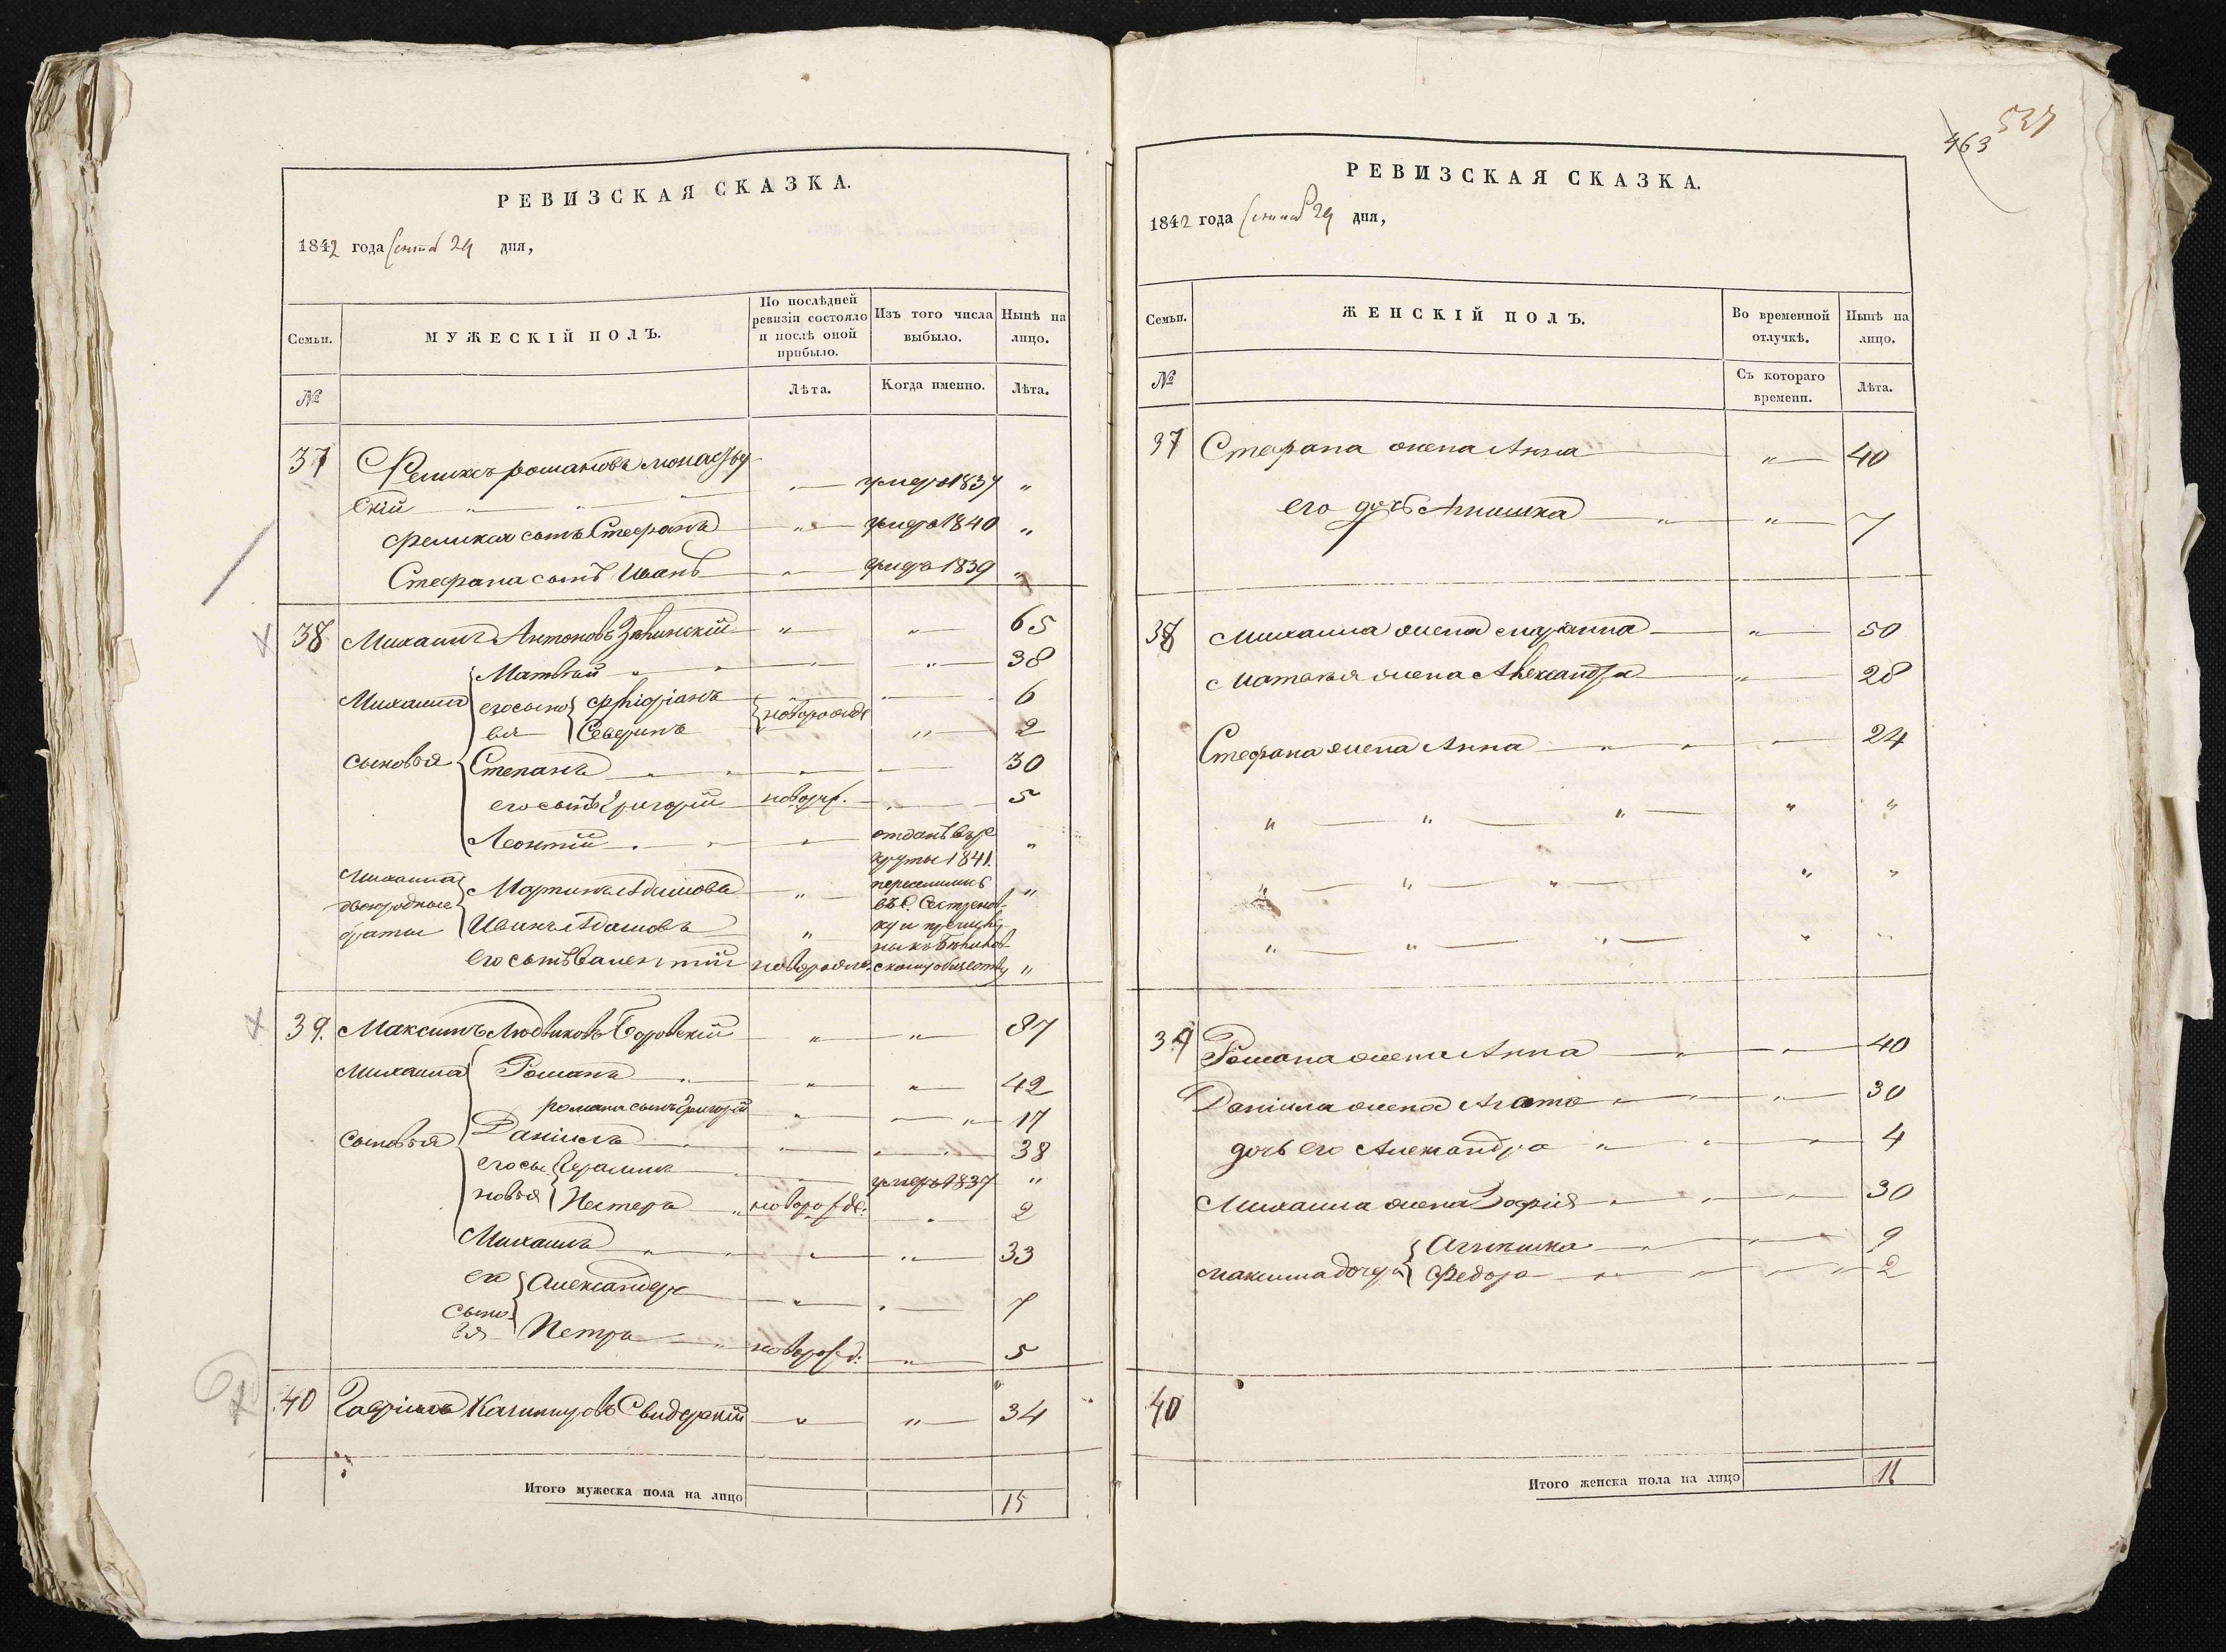 РЕВИЗСКАЯ СКАЗКА.
1842 года Сентяб 29 дня,
Семьи.
МУЖЕСКІЙ ПОЛЪ.
По послѣдней
ревизіи состояло
и послѣ оной
прибыло.
Изъ того числа
выбыло.
Нынѣ на
лицо.
№
Лѣта.
Когда именно.
Лѣта.
37 Феликсъ Романовъ
скій " умеръ 1837 "
Феликса сынъ Стефанъ " умеръ 1840 "
Стефана сынъ Иванъ " умеръ 1839 "
38 Михаилъ Антоновъ " " 65
Матвѣй " " " 38
Михаила его сыно Фліоріанъ новорожде 6
вья Северинъ " 2
сыновья Степанъ " " 30
его сынъ Григорій новорж. " 5
Леонтій " отданъ въ ре "
круты 1841.
Михаила Мартинъ Адамовъ " переселились "
двоюродные въ С.
братья Иванъ Адамовъ " ку и
его сынъ Валентій новорожде. скому обществу "
39. Максимъ Людвиковъ Боровскій " " 87
Михаила Романъ " " 42
Романа сынъ Григорій " " 17
сыновья Даніилъ " " 38
его сы умеръ 1837 "
новья Нестеръ новорожде: " 2
Михаилъ " " 33
его Александръ " " 7
сыно
вья Петръ новорожд: " 5
40 Гавріилъ Казимировъ Свидерскій " " 34
Итого мужеска пола на лицо 15
463 537
РЕВИЗСКАЯ СКАЗКА.
1842 года Сентяб 29 дня,
Семьи.
ЖЕНСКІЙ ПОЛЪ.
Во временной
отлучкѣ.
Нынѣ на
лицо.
№
Съ котораго
времени.
Лѣта.
37 Стефана жена Анна " 40
его дочь " " 7
38 Михаила жена Маріанна " 50
Матвѣя жена Александра " 28
Стефана жена Анна " " " 24
" " " " "
" " " " "
" " " " "
39 Романа жена Анна " " 40
Даніила жена Агата " " " 30
дочь его Александра " " " 4
Михаила жена Зофія " " " 30
Агнешка " " 9
Максима дочери Федора " " " " 2
40
Итого женска пола на лицо 11